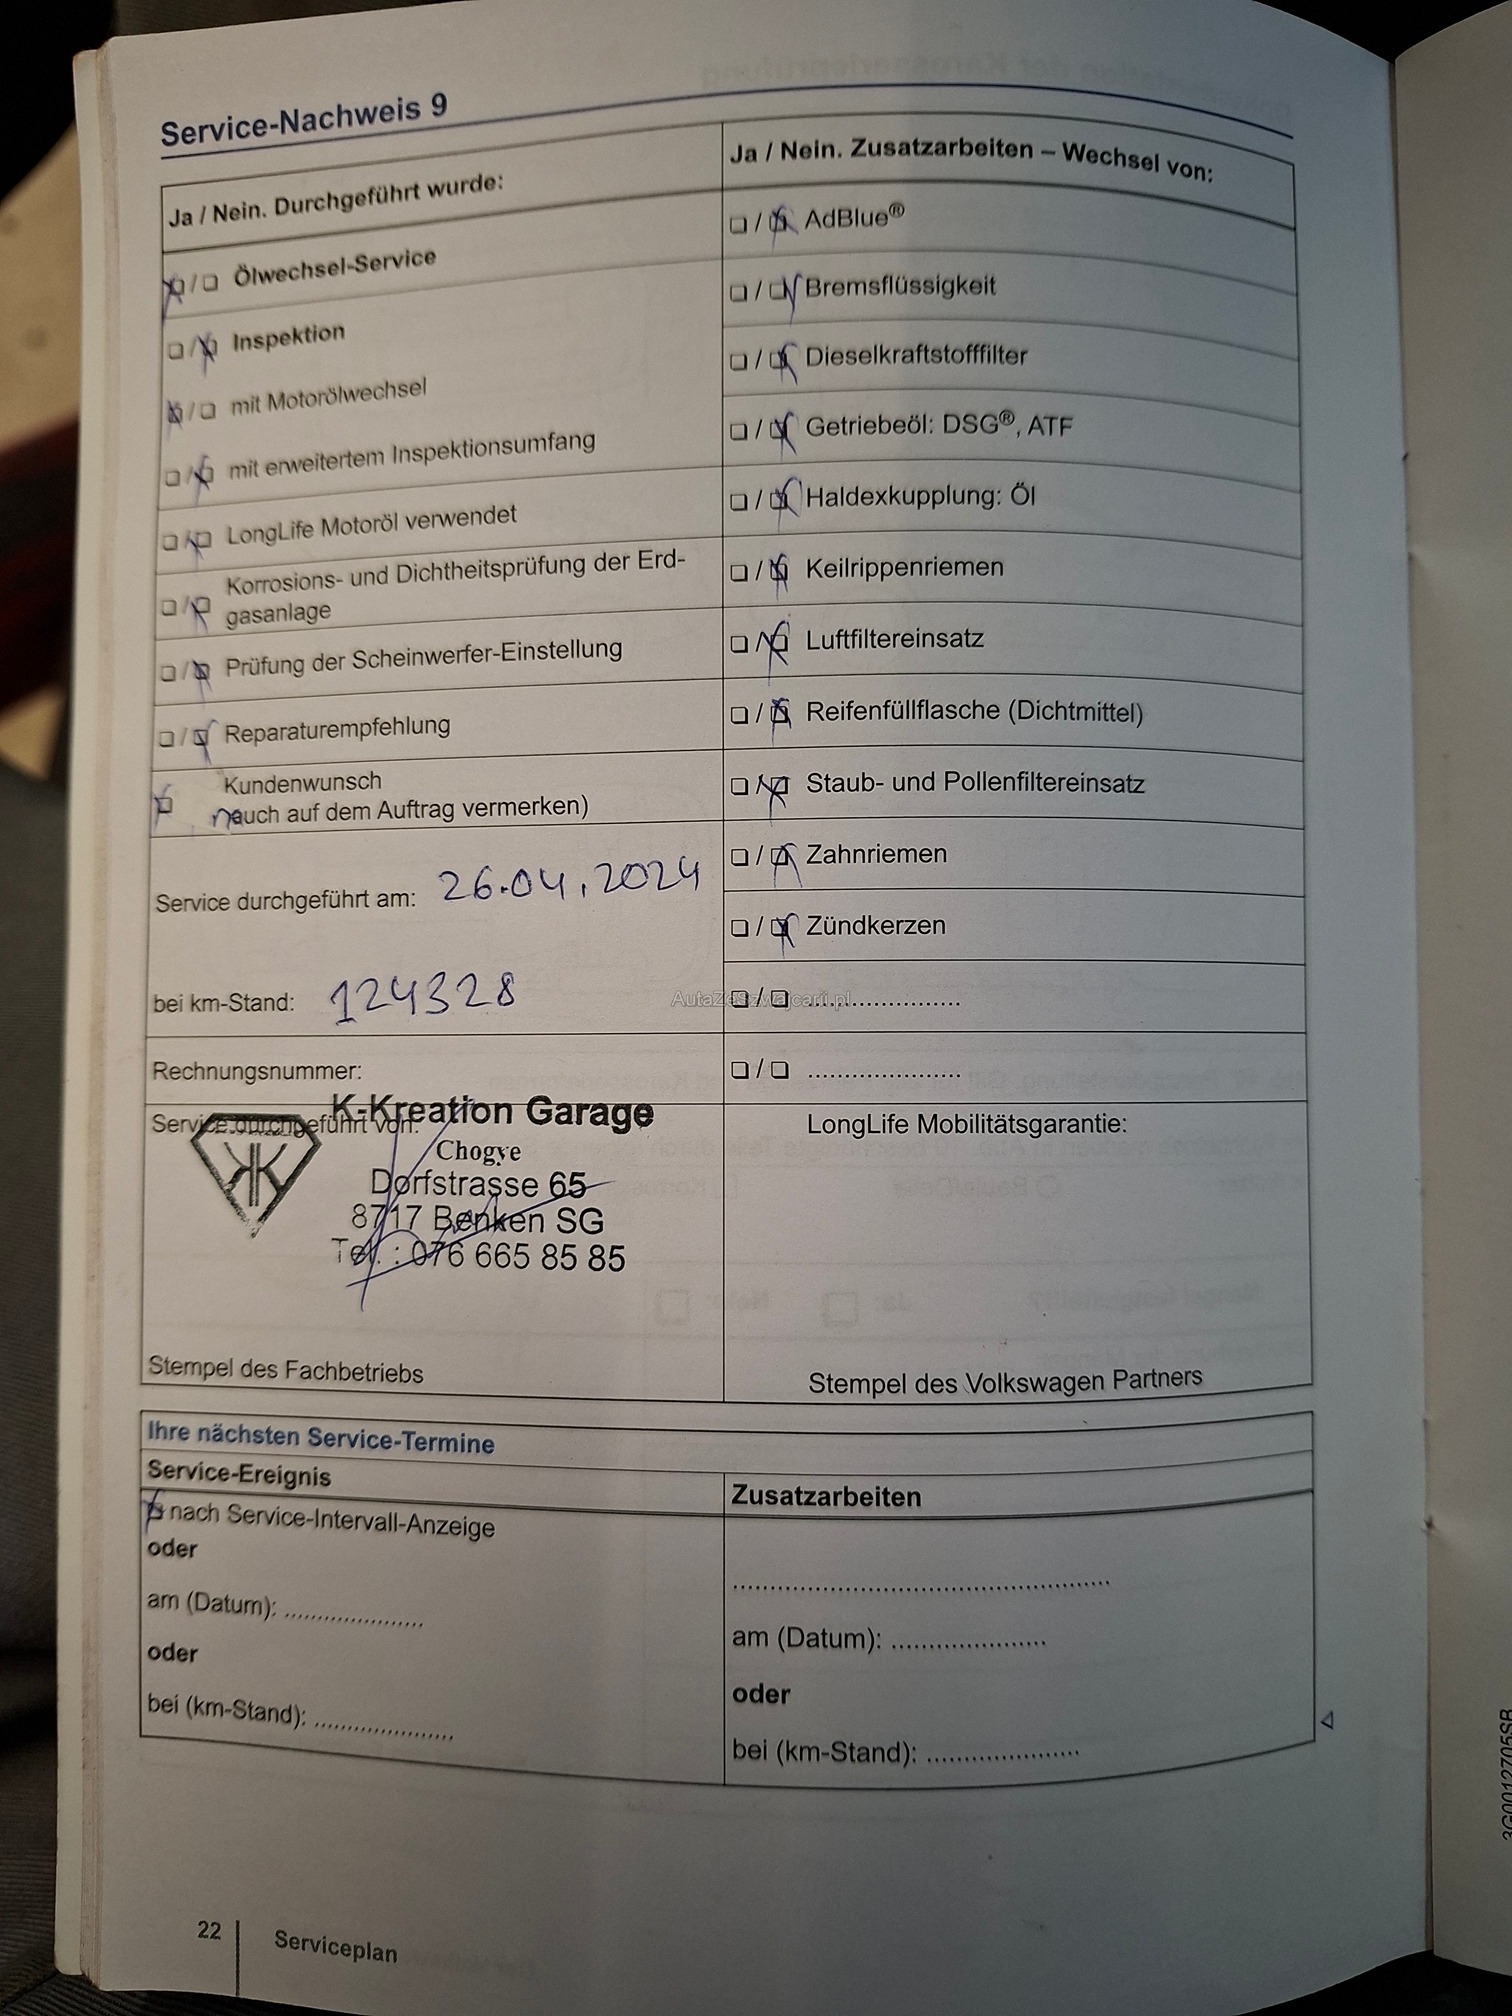 Service-Nachweis 9
Ja / Nein. Durchgeführt wurde:
Ölwechsel-Service
Inspektion
mit Motorölwechsel
mit erweitertem Inspektionsumfang
LongLife Motoröl verwendet
Korrosions- und Dichtheitsprüfung der Erd-
gasanlage
Prüfung der Scheinwerfer-Einstellung
Reparaturempfehlung
Kundenwunsch
auch auf dem Auftrag vermerken)
Service durchgeführt am: 26.04.2024
bei km-Stand: 124328
Rechnungsnummer:
Service durchgeführt von:
K-Kreation Garage
Chogye
Dorfstrasse 65
8717 Benken SG
Tel.: 076 665 85 85
Stempel des Fachbetriebs
Ja / Nein. Zusatzarbeiten – Wechsel von:
AdBlue®
Bremsflüssigkeit
Dieselkraftstofffilter
Getriebeöl: DSG®, ATF
Haldexkupplung: Öl
Keilrippenriemen
Luftfiltereinsatz
Reifenfüllflasche (Dichtmittel)
Staub- und Pollenfiltereinsatz
Zahnriemen
Zündkerzen
AutaZeSzwajcarii.pl
LongLife Mobilitätsgarantie:
Stempel des Volkswagen Partners
Ihre nächsten Service-Termine
Service-Ereignis
nach Service-Intervall-Anzeige
oder
am (Datum): ......................
oder
bei (km-Stand): ......................
Zusatzarbeiten
am (Datum): ......................
oder
bei (km-Stand): ......................
22
Serviceplan
3G0012705SB